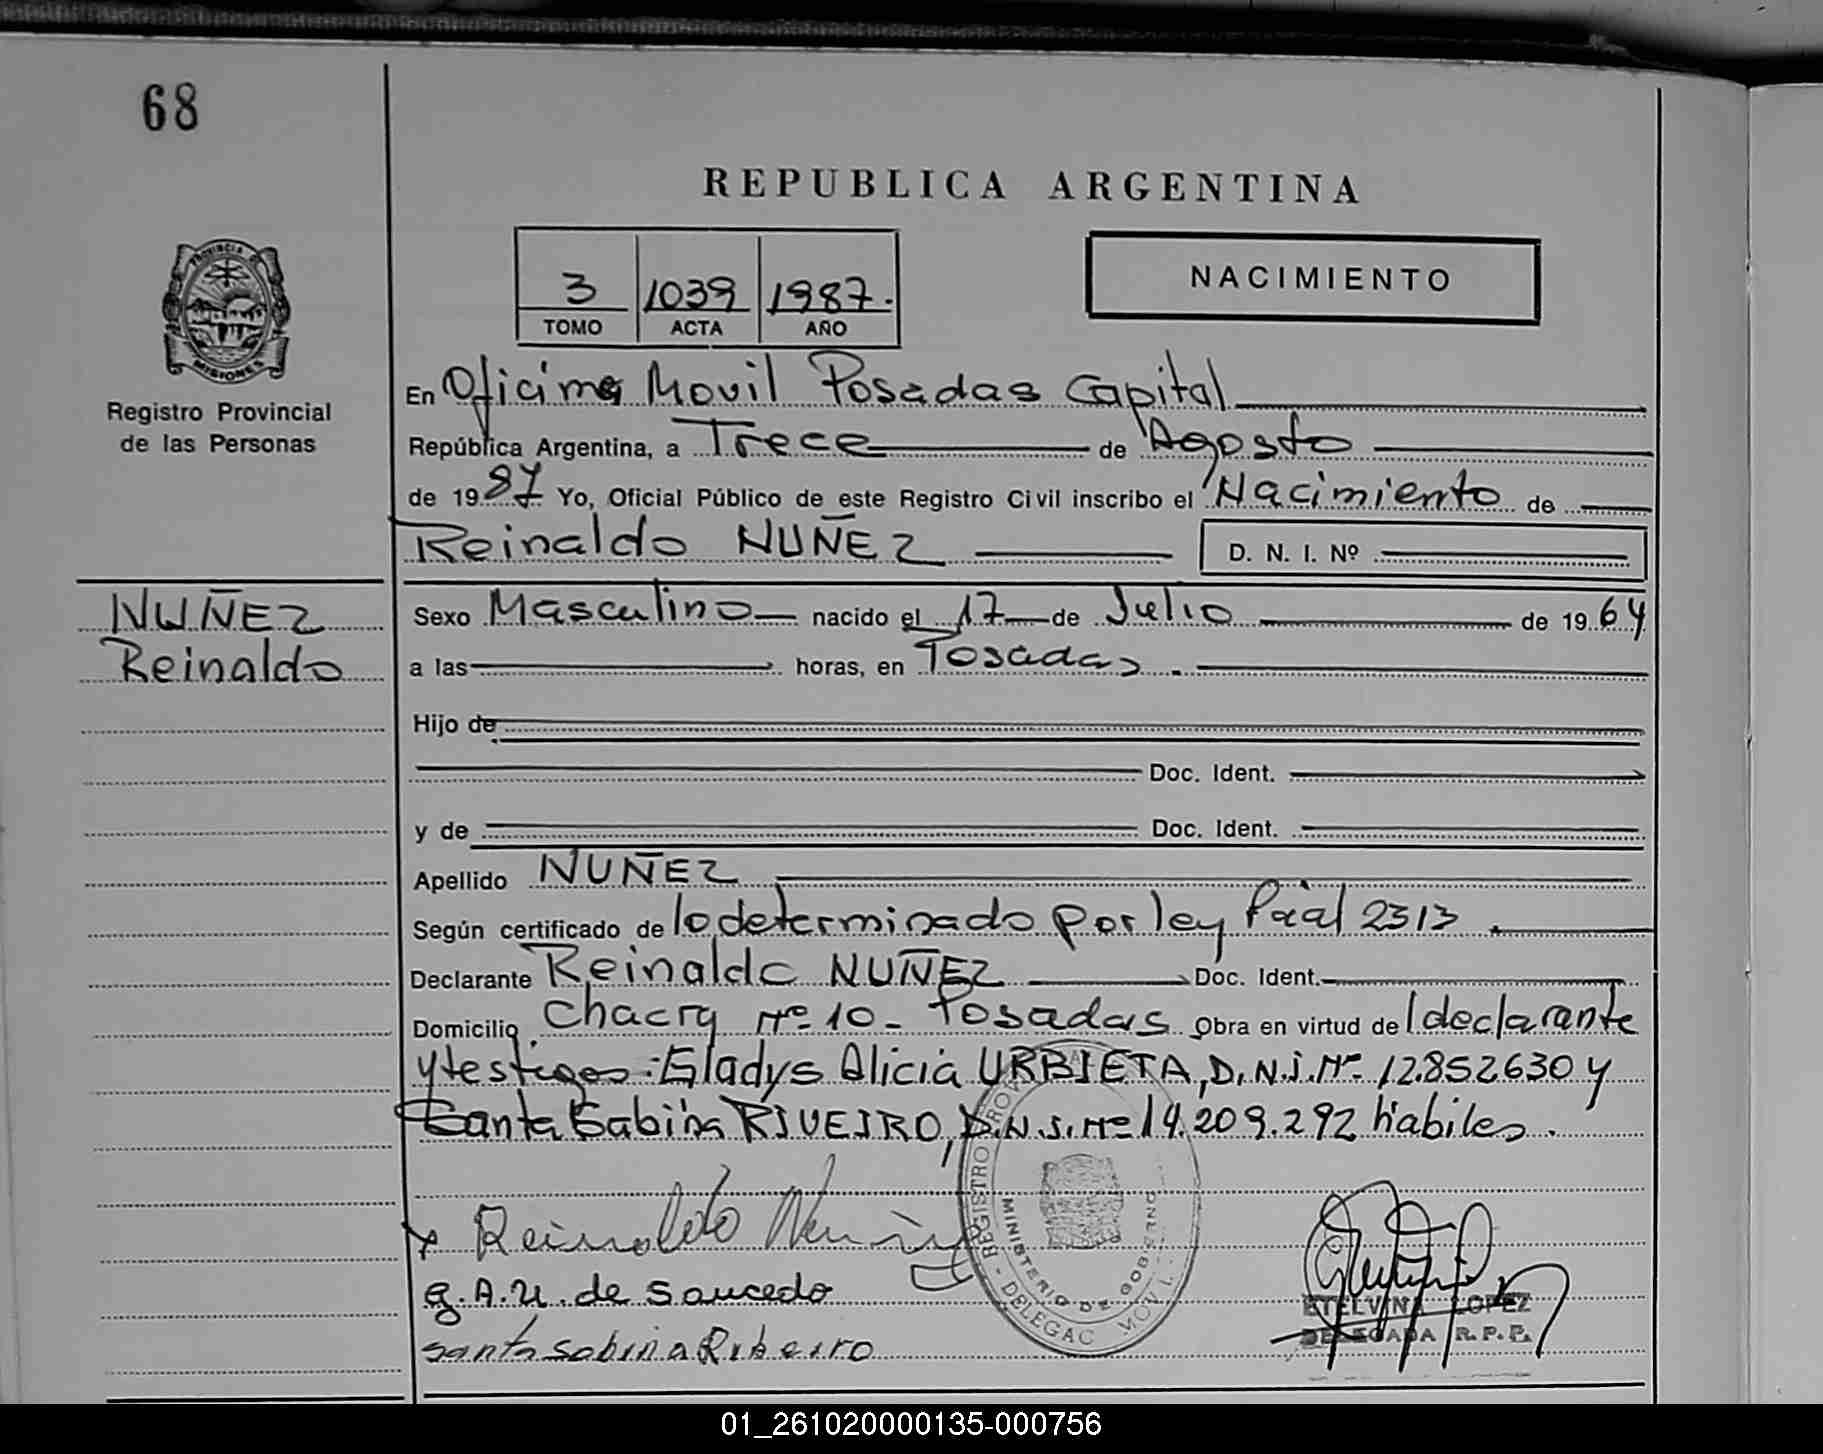 68
REPUBLICA ARGENTINA
PROVINCIA DE
MISIONES
Registro Provincial
de las Personas
3 1039 1987.
TOMO ACTA AÑO
NACIMIENTO
En Oficina Movil Posadas Capital
República Argentina, a Trece de Agosto
de 1987 Yo, Oficial Público de este Registro Civil inscribo el Nacimiento de
Reinaldo NUÑEZ D. N. I. Nº
NUÑEZ
Reinaldo
Sexo Masculino nacido el 17 de Julio de 1964
a las horas, en Posadas.
Hijo de
Doc. Ident.
y de Doc. Ident.
Apellido NUÑEZ
Según certificado de lo determinado por ley Pcial 2313.
Declarante Reinaldo NUÑEZ Doc. Ident.
Domicilio Chacra Nº 10 - Posadas Obra en virtud de l declarante
y testigos: Gladys Alicia URBIETA, D.N.I. Nº 12852630 y
Santa Sabina RIVEIRO, D.N.I. Nº 14.209.292 hábiles.
x Reinaldo Nuñez
G.A.U. de Saucedo
Santa Sabina Ribeiro
REGISTRO PROV
DELEGAC MOVI
MINISTERIO DE GOBIERNO
ETELVINA LOPEZ
DELEGADA R.P.P.
01_261020000135-000756